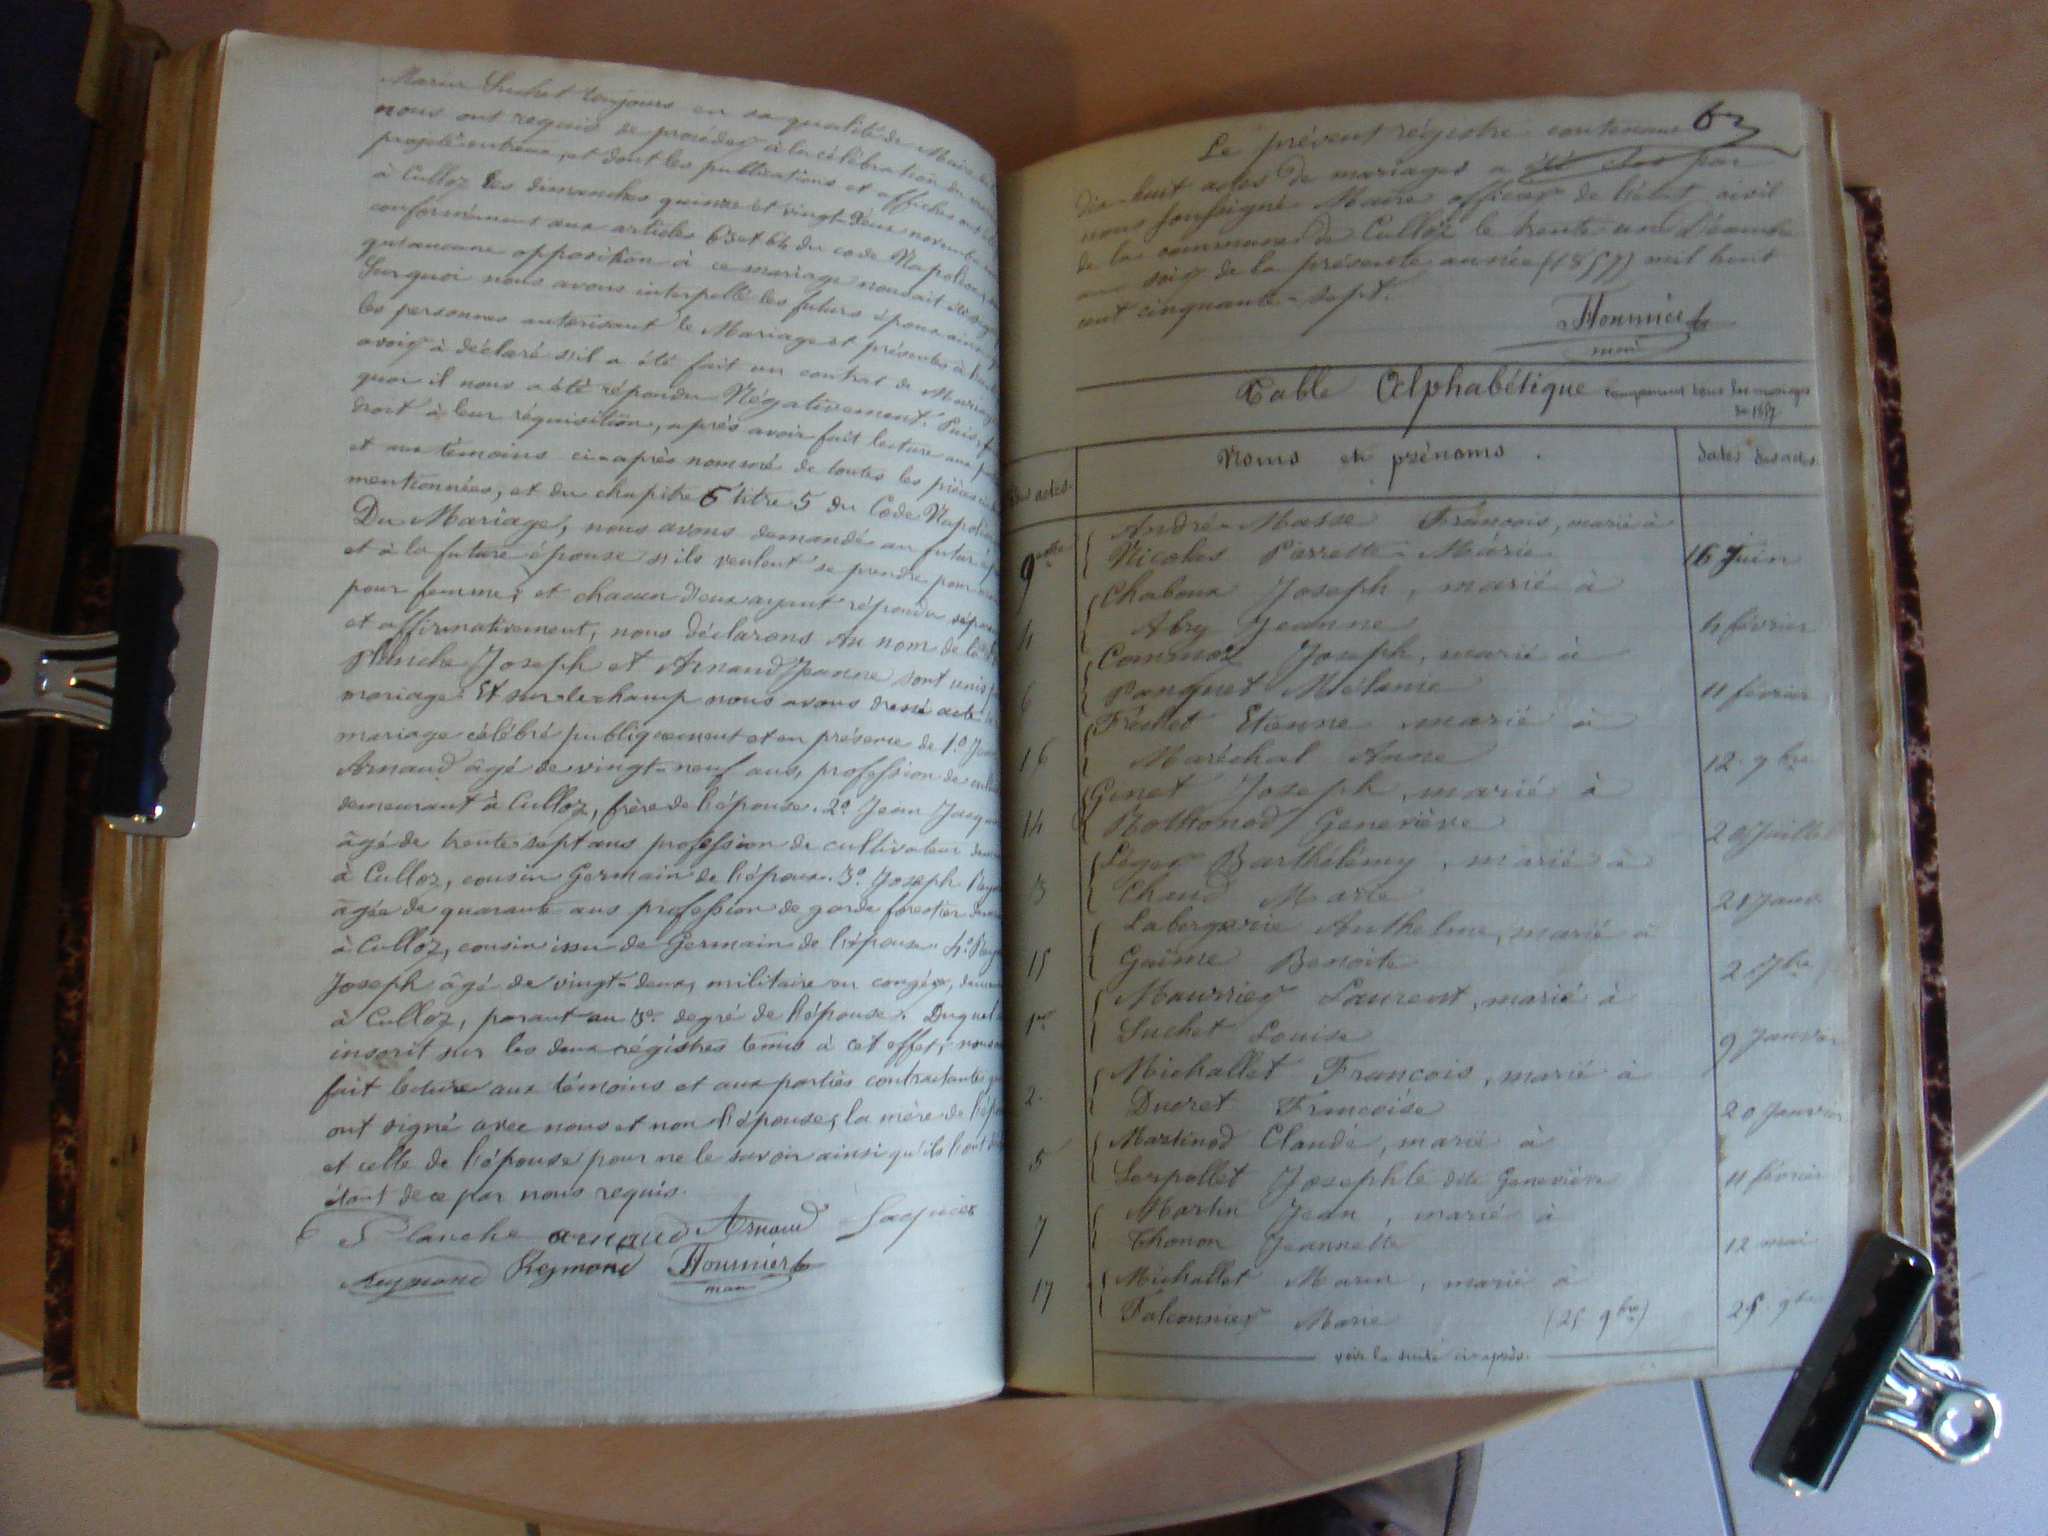 Marin Suchet toujours en sa qualité de Maire
nous ont requis de procéder à la célébration du
projeté entreux, et dont les publications et affiches ont été
à Culloz les dimanches quinze et vingt-deux novembre
conformément aux articles 63 et 64 du code Napoléon,
qu'aucune opposition à ce mariage nous ait été
Sur quoi nous avons interpellé les futurs époux ainsi
les personnes autorisant le Mariage et présentes à
avoir à déclaré s'il a été fait un contrat de Mariage
quoi il nous a été répondu Négativement. Puis,
droit à leur réquisition, après avoir fait lecture aux
et aux témoins ci-après nommé de toutes les pièces
mentionnées, et du chapitre 6 titre 5 du Code Napoléon
Du Mariage, nous avons demandé au futur
et à la future épouse s'ils veulent se prendre pour
pour femme; et chacun d'eux ayant répondu
et affirmativement, nous déclarons au nom de la
Planche Joseph et Arnaud Jeanne sont unis
mariage. Et sur-le-champ nous avons dressé acte
mariage célébré publiquement et en présence de 1.º
Arnaud âgé de vingt-neuf ans, profession de
demeurant à Culloz, frère de l'épouse. 2º Jean
âgé de trente-sept ans profession de cultivateur
à Culloz, cousin Germain de l'épouse. 3º. Joseph
âgée de quarante ans profession de garde forestier
à Culloz, cousin issu de Germain de l'épouse. 4.º
Joseph âgé de vingt-deux, militaire en congée,
à Culloz, parant au 3e. degré de l'épouse. Duquel
inscrit sur les deux régistres tenus à cet effet, nous
fait lecture aux témoins et aux parties contractantes
ont signé avec nous et non l'épouse, la mère de
et celle de l'épouse pour ne le savoir ainsi qu'ils l'ont
étant de ce par nous requis.
Planche arnaud Arnaud
Reymond Reymond Fournier
maire
62
Le présent régistre contenant
dix-huit actes de mariages a été clos par
nous soussigné Maire officier de l'état civil
de la commune de Culloz le trente un Décembre
au soir de la présente année (1857) mil huit
cent cinquante-sept.
Fournier
maire
Table Alphabétique comprenant tous les mariages
de 1857
des actes. Noms et prénoms. dates des actes.
André-Masse François, marié à
9 Nicolas Pierrette-Marie 16 Juin
Chaboux Joseph, marié à
4 Abry Jeanne 4 février
Commoz Joseph, marié à
6 Panquet Mélanie 11 février
Féchet Etienne marié à
16 Maréchal Anne 12 9bre
Ginet Joseph, marié à
14 Bothonod Geneviève 20 Juillet
Léger Barthélemy, marié à
3 Chaud Marie 28 Janv
Labergerie Anthelme, marié à
15 Guime Benoite 2 7bre
Maurrier Laurent, marié à
1er Suchet Louise 9 Janvier
Michallet François, marié à
2. Ducret Françoise 20 Janvier
Martinod Claude, marié à
5 Serpollet Josephte dite Geneviève 11 février
Martin Jean, marié à
7 Thonon Jeannette 12 mai
Michallet Marin, marié à
17 Falconnier Marie (25 9bre) 25. 9bre
voir la suite ci-après.